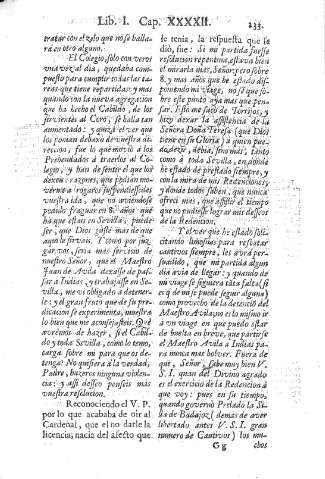 Lib. I. Cap. XXXXII. 233.
tratar con el zelo que no se halla-
rà en otro alguno.
El Colegio, sólo con veros
una vez al dia, quedaba com-
puesto para cumplir todas las ta-
reas que tiene repartidas; y mas
quando con la nueva agregacion
que ha hecho el Cabildo, de los
sirvientes al Coro, se halla tan
aumentado: y quizà el ver que
los ponian debaxo de vuestra di-
reccion, fue lo que moviò à los
Prebendados à traerlos al Co-
legio, y han de sentir el que los
dexeis: razones, que podian mo-
verme à rogaros suspendiesedes
vuestra ida, que no aviendose
podido fraguar en 8. años que
ha que estais en Sevilla, puede
ser, que Dios guste mas de que
aqui le sirvais. Y como por juz-
gar vos, seria mas servicio de
nuestro Señor, que el Maestro
Juan de Avila dexasse de pas-
sar à Indias, y trabajasse en Se-
villa, me vi obligado à detener-
le; y el gran fruto que de su pre-
dicacion se experimenta, muestra
lo bien que me aconsejasteis. Què
avrèmos de hazer, si el Cabil-
do y toda Sevilla, como lo temo,
carga sobre mi para que os de-
tenga? No quisiera à la verdad,
Padre, hazeros ninguna violen-
cia: y assi desseo penseis mas
vuestra resolucion.
Reconociendo el V. P.
por lo que acababa de oir al
Cardenal, que el no darle la
licencia, nacia del afecto que
le tenia, la respuesta que le
diò, fue: Si mi partida fuesse
resolucion repentina, estava bien
el mirarla mas, Señor; pero sobre
8. y mas años que he estado dis-
poniendo mi viage, no sè que so-
bre este punto aya mas que pen-
sar. Por esso me sacò de Torrijos, y
hizo dexar la assistencia de la
Señora Doña Teresa (que Dios
tiene en su Gloria) à quien pue-
do dezir, debia, sino mas, tanto
como à toda Sevilla, en donde
he estado de prestado siempre, y
con la mira de mis Redenciones;
y donde todos saben, que nunca
ofrecì mas, que assistir el tiempo
que no pudiesse lograr mis desseos
de la Redencion.
Y el ver que he estado soli-
citando limosnas para rescatar
cautivos siempre, les avrà per-
suadido, que mi partida algun
dia avia de llegar: y quando de
mi viage se siguiera tàta falta (si
es q̃ de mi se puede seguir alguna)
como provecho de la detencion del
Maestro Avila; no es lo mismo ir
à un viage en que puedo estar
de buelta en breve, que partirse
el Maestro Avila à Indias pa-
ra nunca mas bolver. Fuera de
que, Señor, sabe muy bien V.
S. I. quan del Divino agrado
es el exercicio de la Redencion à
que voy: pues en su tiempo,
quando governò Prelado la Si-
lla de Badajoz (demàs de aver
libertado antes V. S. I. gran
numero de Cautivos) los mu-
Gg chos